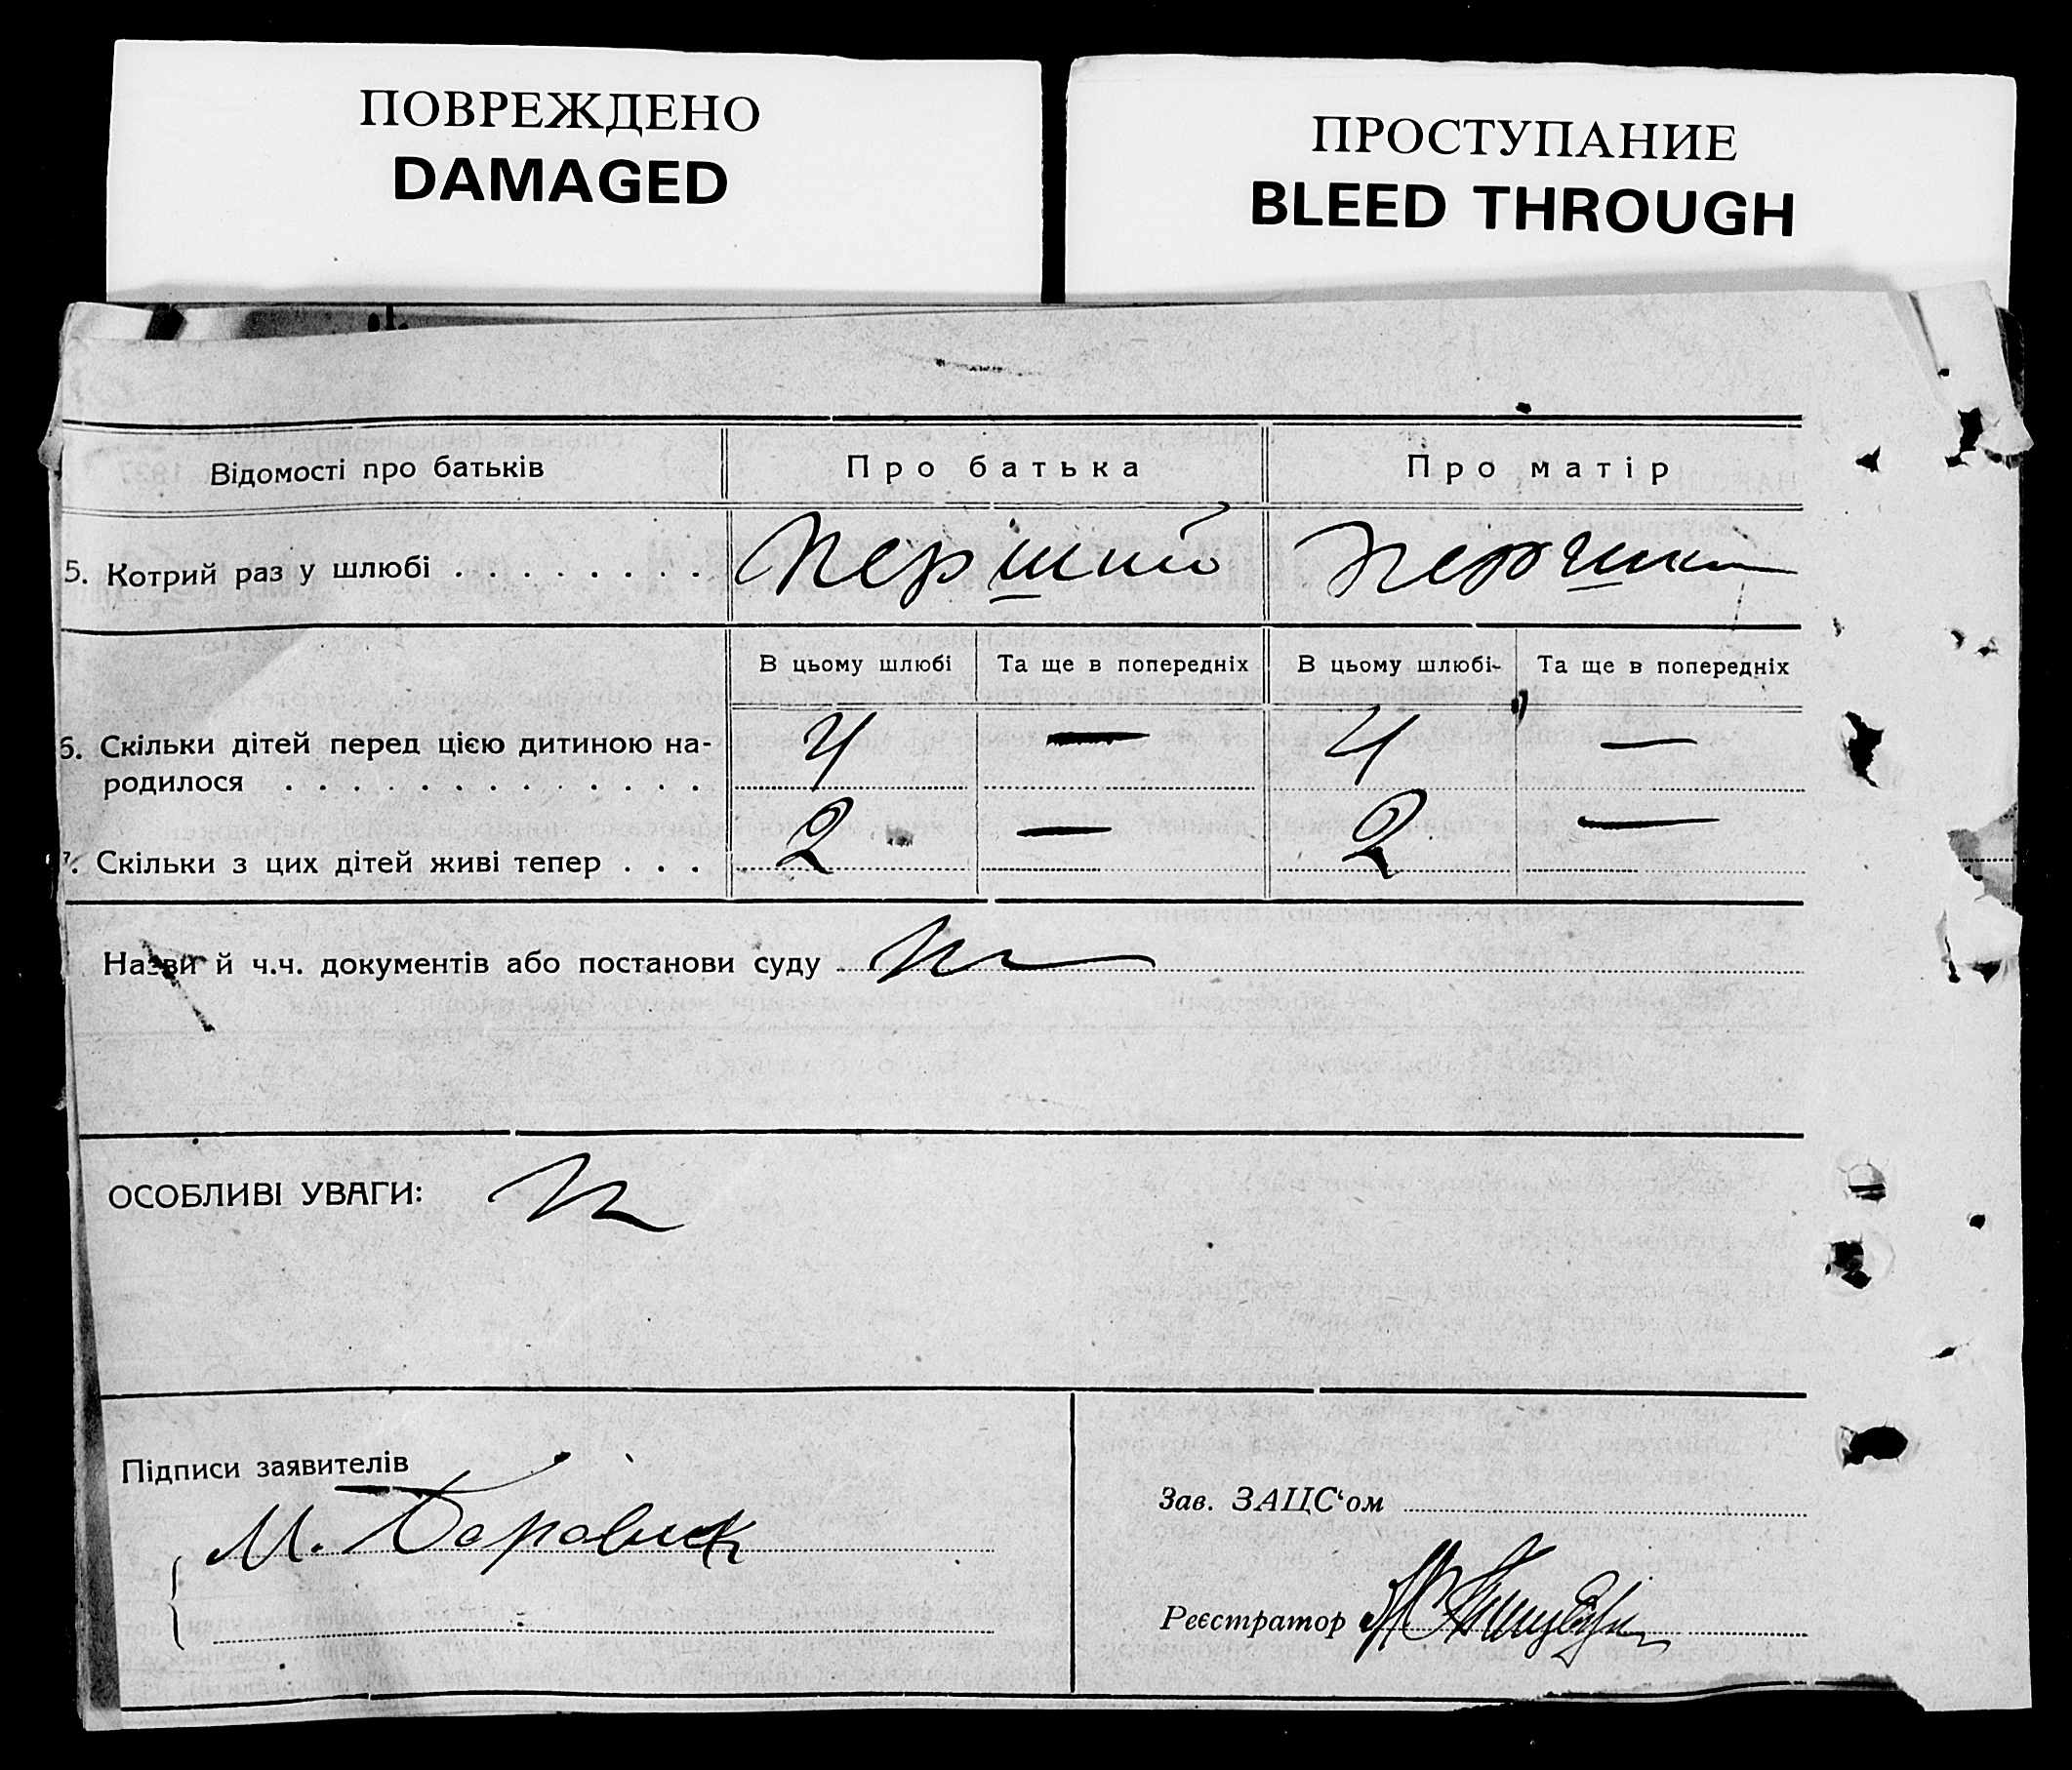 ПОВРЕЖДЕНО
DAMAGED
ПРОСТУПАНИЕ
BLEED THROUGH
Відомості про батьків
Про батька
Про матір
5. Котрий раз у шлюбі
перший
перший
В цьому шлюбі
Та ще в попередніх
В цьому шлюбі
Та ще в попередніх
6. Скільки дітей перед цією дитиною на-
родилося
4 — 4 —
7. Скільки з цих дітей живі тепер
2 — 2 —
Назви й ч.ч. документів або постанови суду
ОСОБЛИВІ УВАГИ:
Підписи заявителів
М. Боровик
Зав. ЗАЦС‘ом
Реєстратор